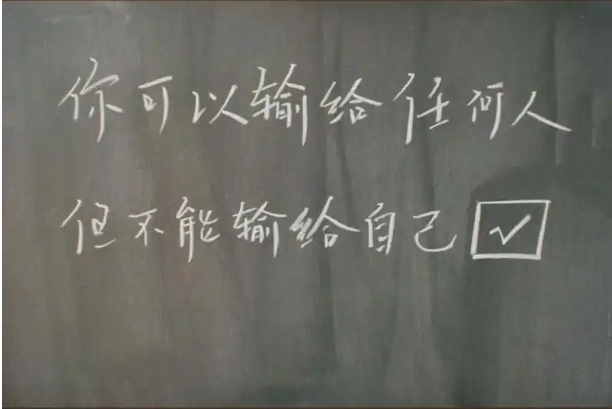 你可以输给任何人
但不能输给自己 ☑